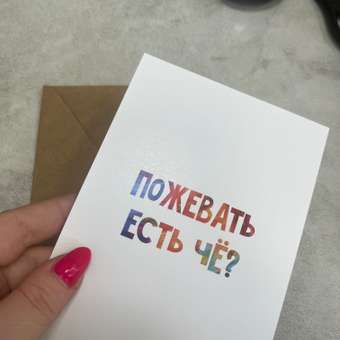 ПОЖЕВАТЬ
ЕСТЬ ЧЁ?